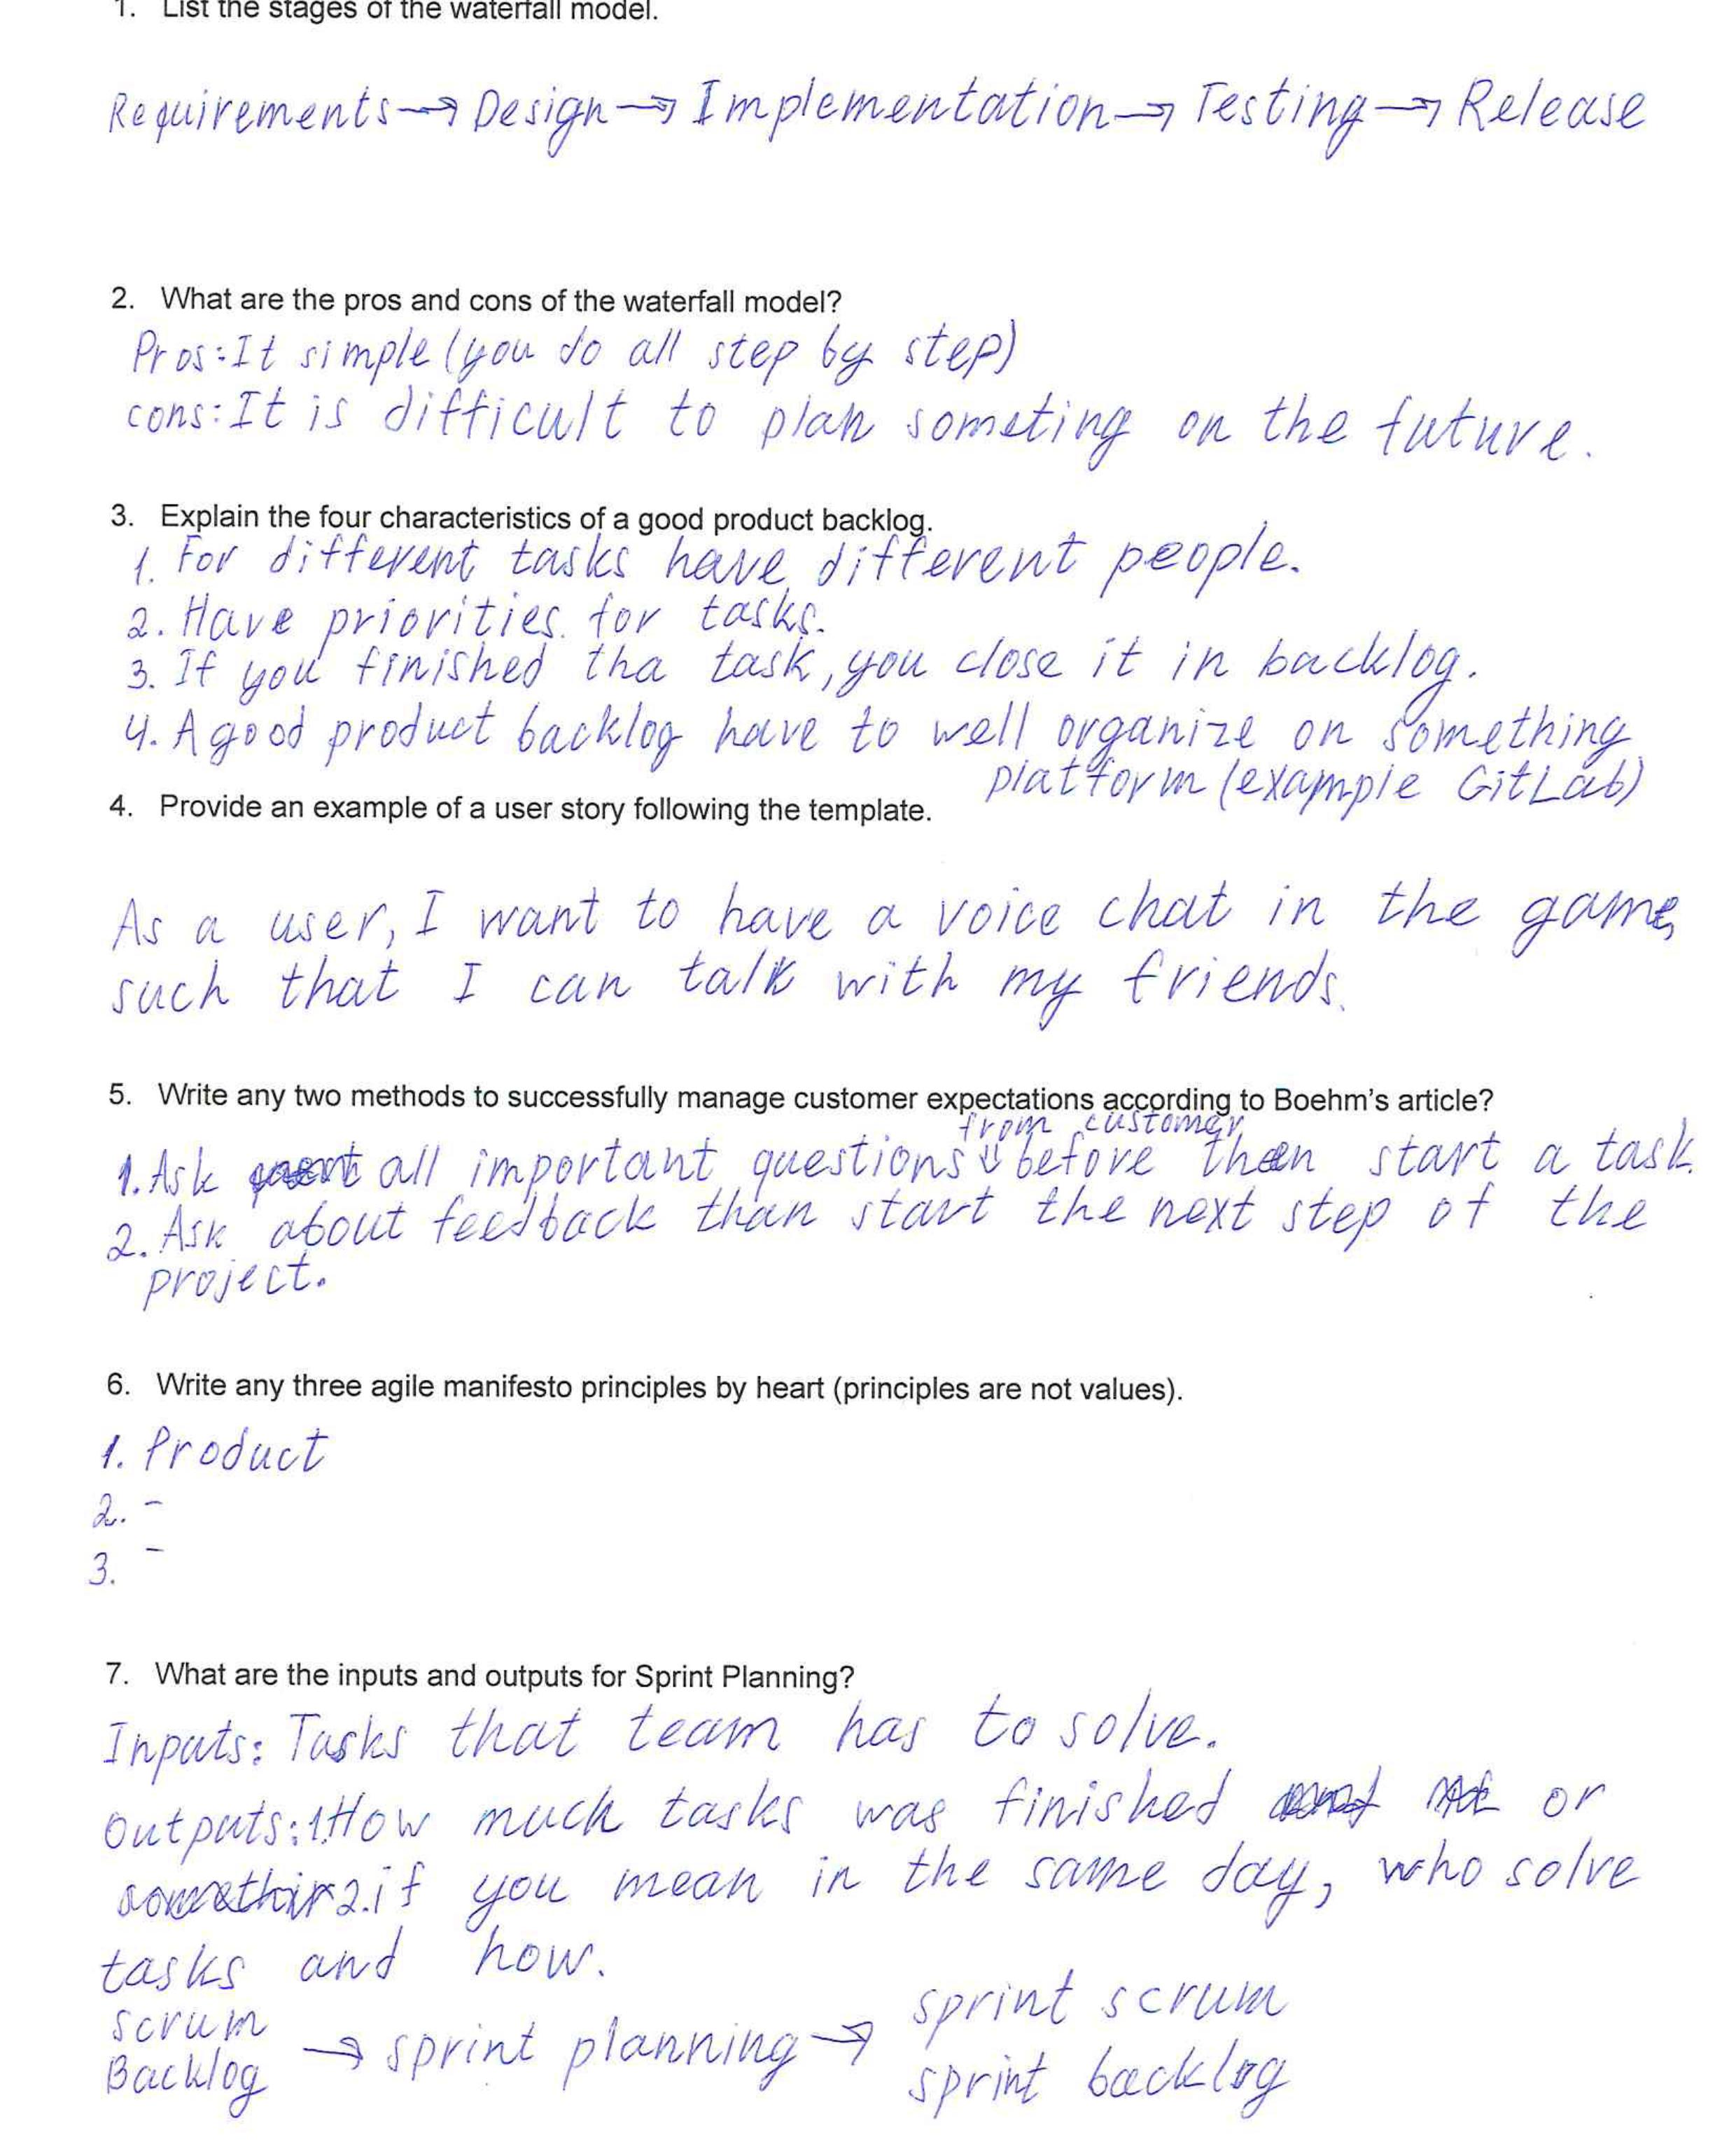 1. List the stages of the waterfall model.
Requirements → Design → Implementation → Testing → Release
2. What are the pros and cons of the waterfall model?
Pros: It simple (you do all step by step)
cons: It is difficult to plan someting on the future.
3. Explain the four characteristics of a good product backlog.
1. For different tasks have different people.
2. Have priorities for tasks.
3. If you finished tha task, you close it in backlog.
4. A good product backlog have to well organize on something
platform (example GitLab)
4. Provide an example of a user story following the template.
As a user, I want to have a voice chat in the game,
such that I can talk with my friends.
5. Write any two methods to successfully manage customer expectations according to Boehm's article?
from customer
1. Ask all important questions ↓ before then start a task.
2. Ask about feedback than start the next step of the
project.
6. Write any three agile manifesto principles by heart (principles are not values).
1. Product
2. -
3. -
7. What are the inputs and outputs for Sprint Planning?
Inputs: Tasks that team has to solve.
Outputs: 1. How much tasks was finished or
2. if you mean in the same day, who solve
tasks and how.
Scrum
Backlog → sprint planning → sprint scrum
sprint backlog